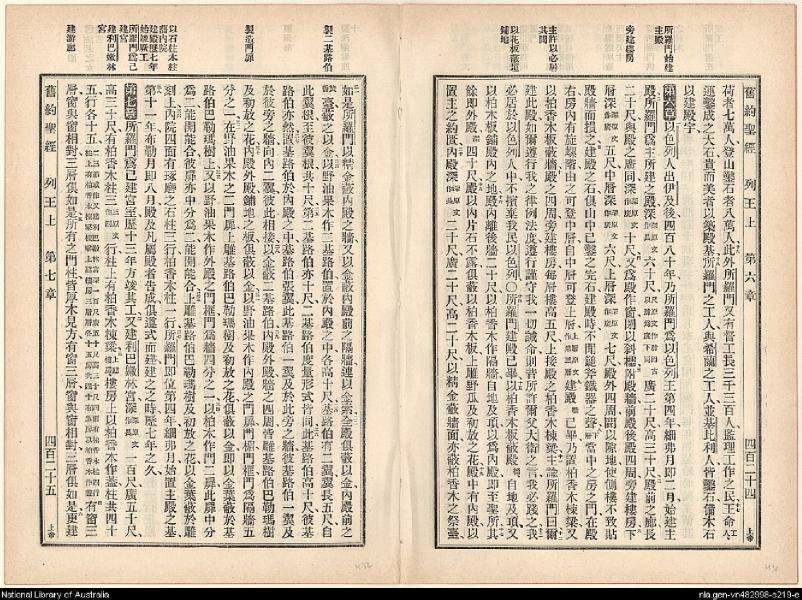 所羅門始建
主殿
旁建樓房
主許以必居
其間
以花板蔽垣
鋪地
舊約聖經 列王上 第六章 四百二十四 上帝
荷者七萬人登山鑿石者八萬人此外所羅門又有督工長三千三百人監理工作之民王命人
運鑿成之大石貴而美者以築殿基所羅門之工人與希蘭之工人並基比利人皆鑿石備木石
以建殿宇
第六章 以色列人出伊及後四百八十年乃所羅門爲以色列王第四年細弗月即二月始建主
殿所羅門爲主所建之殿深六十尺廣二十尺高三十尺殿前之廊長
二十尺與殿之廣同深十尺又爲殿作窗閉以斜櫺附殿牆前殿後殿四周旁建樓房下
層深五尺中層深六尺上層深七尺殿外四周開以隙地使側樓不致貼
殿牆面損之建殿之石俱山中已鑿之完石建殿時不聞鎚斧鐵器之聲當中之房之門在殿
右房內有旋螺階由之可登中層自中層可登上層建殿已畢乃置柏香木棟梁又
以柏香木板蔽牆殿之四周旁建樓房每層樓高五尺上接殿之柏香木棟梁主諭所羅門曰爾
建此殿如爾遵行我之律例法度謹守我一切誡命則昔所許爾父大衛之言我必踐之我
必居於以色列人中不擯棄我民以色列〇所羅門建殿已畢以柏香木板蔽殿自地及頂又
以柏木板鋪殿內之地殿內離後牆二十尺以柏香木作隔牆自地及項以爲內殿即至聖所其
餘即外殿四十尺殿以內片石不露俱蔽以柏香木板上雕野瓜及初放之花殿中有內殿以
置主之約匱內殿深二十尺廣二十尺高二十尺以精金蔽牆面亦蔽柏香木之祭臺
製二基路伯
製造門扉
以石柱木柱
蔽內院
建殿歷七年
始竣厥工
所羅門爲己
建宮
建利巴嫩林
宮
建游廊
如是所羅門以精金蔽內殿之牆又以金蔽內殿前之隔牆連以金索全殿俱蔽以金內殿前之
臺蔽之以金以野油果木作二基路伯置於內殿之中各高十尺基路伯有二翼翼長五尺自
此翼根至彼翼根共十尺第二基路伯亦十尺二基路伯度量形式皆同此基路伯高十尺彼基
路伯亦然置基路伯於內殿之中基路伯張翼此基路伯一翼及於此旁之牆彼基路伯一翼及
於彼旁之牆向內二翼彼此相接以金蔽二基路伯內殿外殿牆之四周皆雕基路伯巴勒瑪樹
及初放之花內殿外殿鋪地之板俱蔽以金以野油果木作內殿之門扉門楣門框門爲隔牆五
分之一在野油果木之二門扉上雕基路伯巴勒瑪樹及初放之花俱蔽以金即以金葉蔽於基
路伯巴勒瑪樹上又以野油果木作外殿之門框門爲牆四分之一以柏木作門二扉此扉中分
爲二能開能合彼扉亦中分爲二能開能合上雕基路伯巴勒瑪樹及初放之花以金葉蔽於雕
刻上內院四面有琢磨之石柱三行柏香木柱一行所羅門即位第四年細弗月始置主殿之基
第十一年布勒月即八月殿及凡屬殿者告成俱遵式而建建之之時歷七年之久
第七章 所羅門爲己建宮室歷十三年方竣其工又建利巴嫩林宮深一百尺廣五十尺
高三十尺有柏香木柱三行柱上有柏香木棟梁樓房上以柏香木作蓋柱共四十
五行各十五有窗三
層窗與窗相對三層俱如是所有之門柱皆厚木見方有窗三層窗與窗相對三層俱如是更建
舊約聖經 列王上 第七章 四百二十五 上帝
National Library of Australia
nla.gen-vn482998-s219-e